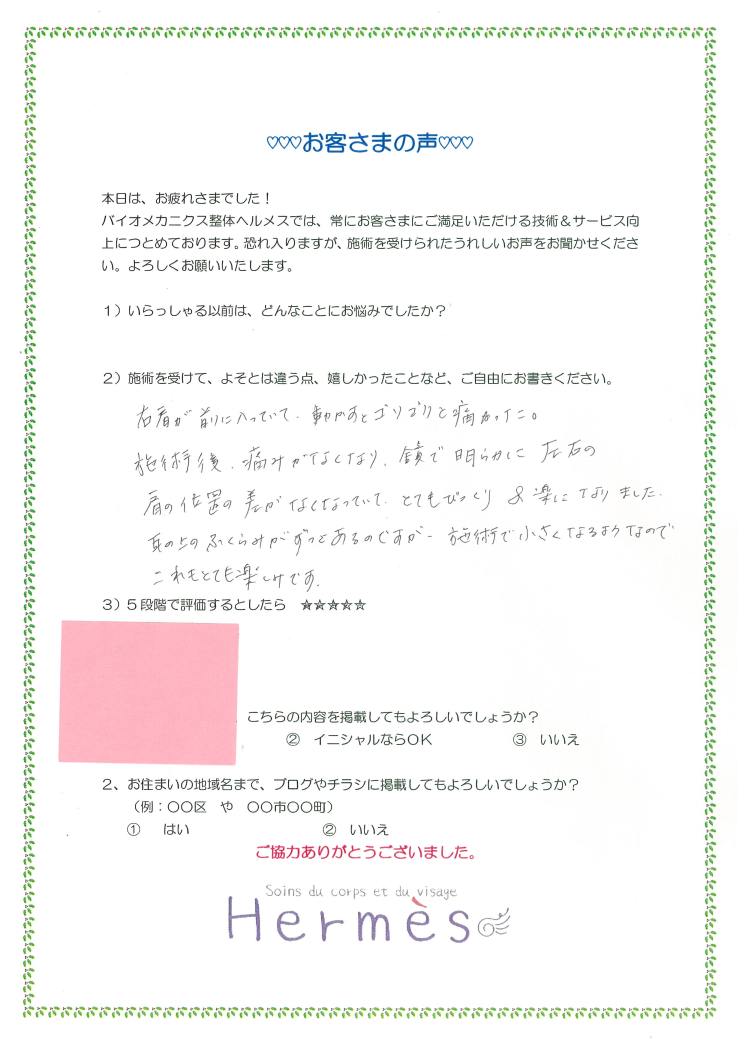 ♡♡♡お客さまの声♡♡♡
本日は、お疲れさまでした！
バイオメカニクス整体ヘルメスでは、常にお客さまにご満足いただける技術＆サービス向
上につとめております。恐れ入りますが、施術を受けられたうれしいお声をお聞かせくださ
い。よろしくお願いいたします。
１）いらっしゃる以前は、どんなことにお悩みでしたか？
２）施術を受けて、よそとは違う点、嬉しかったことなど、ご自由にお書きください。
右肩が前に入っていて、動かすとゴリゴリと痛かった。
施術後、痛みがなくなり、鏡で明らかに左右の
肩の位置の差がなくなっていて、とてもびっくり＆楽になりました。
の上のふくらみがずっとあるのですが、施術で小さくなるようなので
これもとても楽しみです。
３）５段階で評価するとしたら　☆☆☆☆☆
こちらの内容を掲載してもよろしいでしょうか？
②　イニシャルならＯＫ　③　いいえ
２、お住まいの地域名まで、ブログやチラシに掲載してもよろしいでしょうか？
（例：〇〇区　や　〇〇市〇〇町）
①　はい　②　いいえ
ご協力ありがとうございました。
Soins du corps et du visage
Hermès